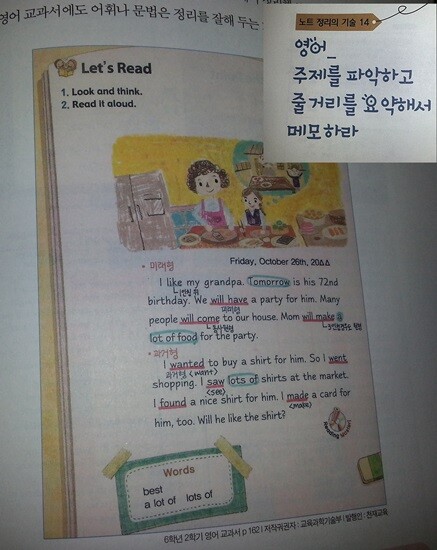 영어 교과서에도 어휘나 문법은 정리를 잘해 두는
노트 정리의 기술 14
영어_
주제를 파악하고
줄거리를 요약해서
메모하라
Let's Read
1. Look and think.
2. Read it aloud.
• 미래형
Friday, October 26th, 20△△
I like my grandpa. Tomorrow is his 72nd
birthday. We will have a party for him. Many
미래형
people will come to our house. Mom will make a
동사원형
lot of food for the party.
• 과거형
I wanted to buy a shirt for him. So I went
과거형 <want>
shopping. I saw lots of shirts at the market.
<see>
I found a nice shirt for him. I made a card for
<make>
him, too. Will he like the shirt?
Words
best
a lot of lots of
6학년 2학기 영어 교과서 p 162 | 저작권권자 : 교육과학기술부 | 발행인 : 천재교육